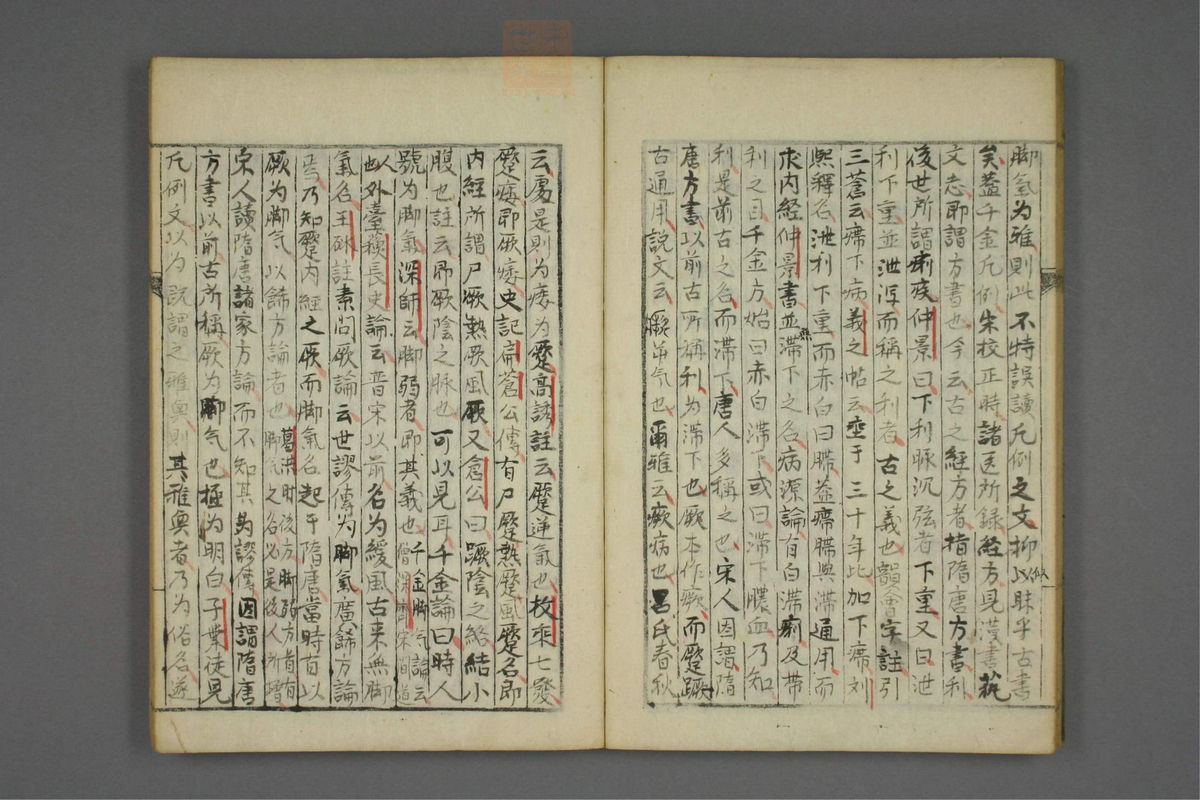 脚氣為雅則此不特誤讀凡例之文抑似昧乎古書
矣蓋千金凡例朱校正時諸医所録経方見漢書藝
文志即謂方書也今云古之経方者指隋唐方書利
後世所謂痢疾仲景曰下利脉沉弦者下重又曰泄
利下重並泄淳而稱之利者古之義也韻會字註引
三蒼云㿃下病義之帖云壑于三十年此加下㿃刘
熙釋名泄利下重而赤白曰䐭蓋㿃䐭與滞通用而
求内経仲景書並無滞下之名病源論有白滞痢及帯
利之目千金方始曰赤白滞下或曰滞下膿血乃知
利是前古之名而滞下唐人多稱之也宋人因謂隋
唐方書以前古所稱利為滞下也厥本作瘚而蹷蹶
古通用説文云瘚屰气也爾雅云瘚病也呂氏春秋
云處是則为痿为蹷高誘註云蹷逆氣也枚乘七發
蹷痿即瘚痿史記扁蒼公傳有尸蹷熱蹷風蹷名即
内経所謂尸厥熱厥風厥又倉公曰蹶陰之絡結小
腹也註云即厥陰之脉也可以見耳千金論曰時人
號为脚氣深師云脚弱者即其義也千金脚气論云僧深齊宋間道
人也外臺蘓長史論云晋宋以前名为緩風古来無脚
氣名王砯註素問厥論云世謬傳为脚氣廣餙方論
焉乃知蹷内経之厥而脚氣名起于隋唐當時首以
厥为脚气以餙方論者也葛洪肘後方脚弱方首有脚气之名必是後人所增
宋人讀隋唐諸家方論而不知其為謬傳因謂隋唐
方書以前古所稱厥为脚气也極为明白子業徒見
凡例文以为既謂之雅奥則其雅奥者乃为俗名遂